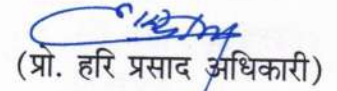 (प्रो. हरि प्रसाद अधिकारी)